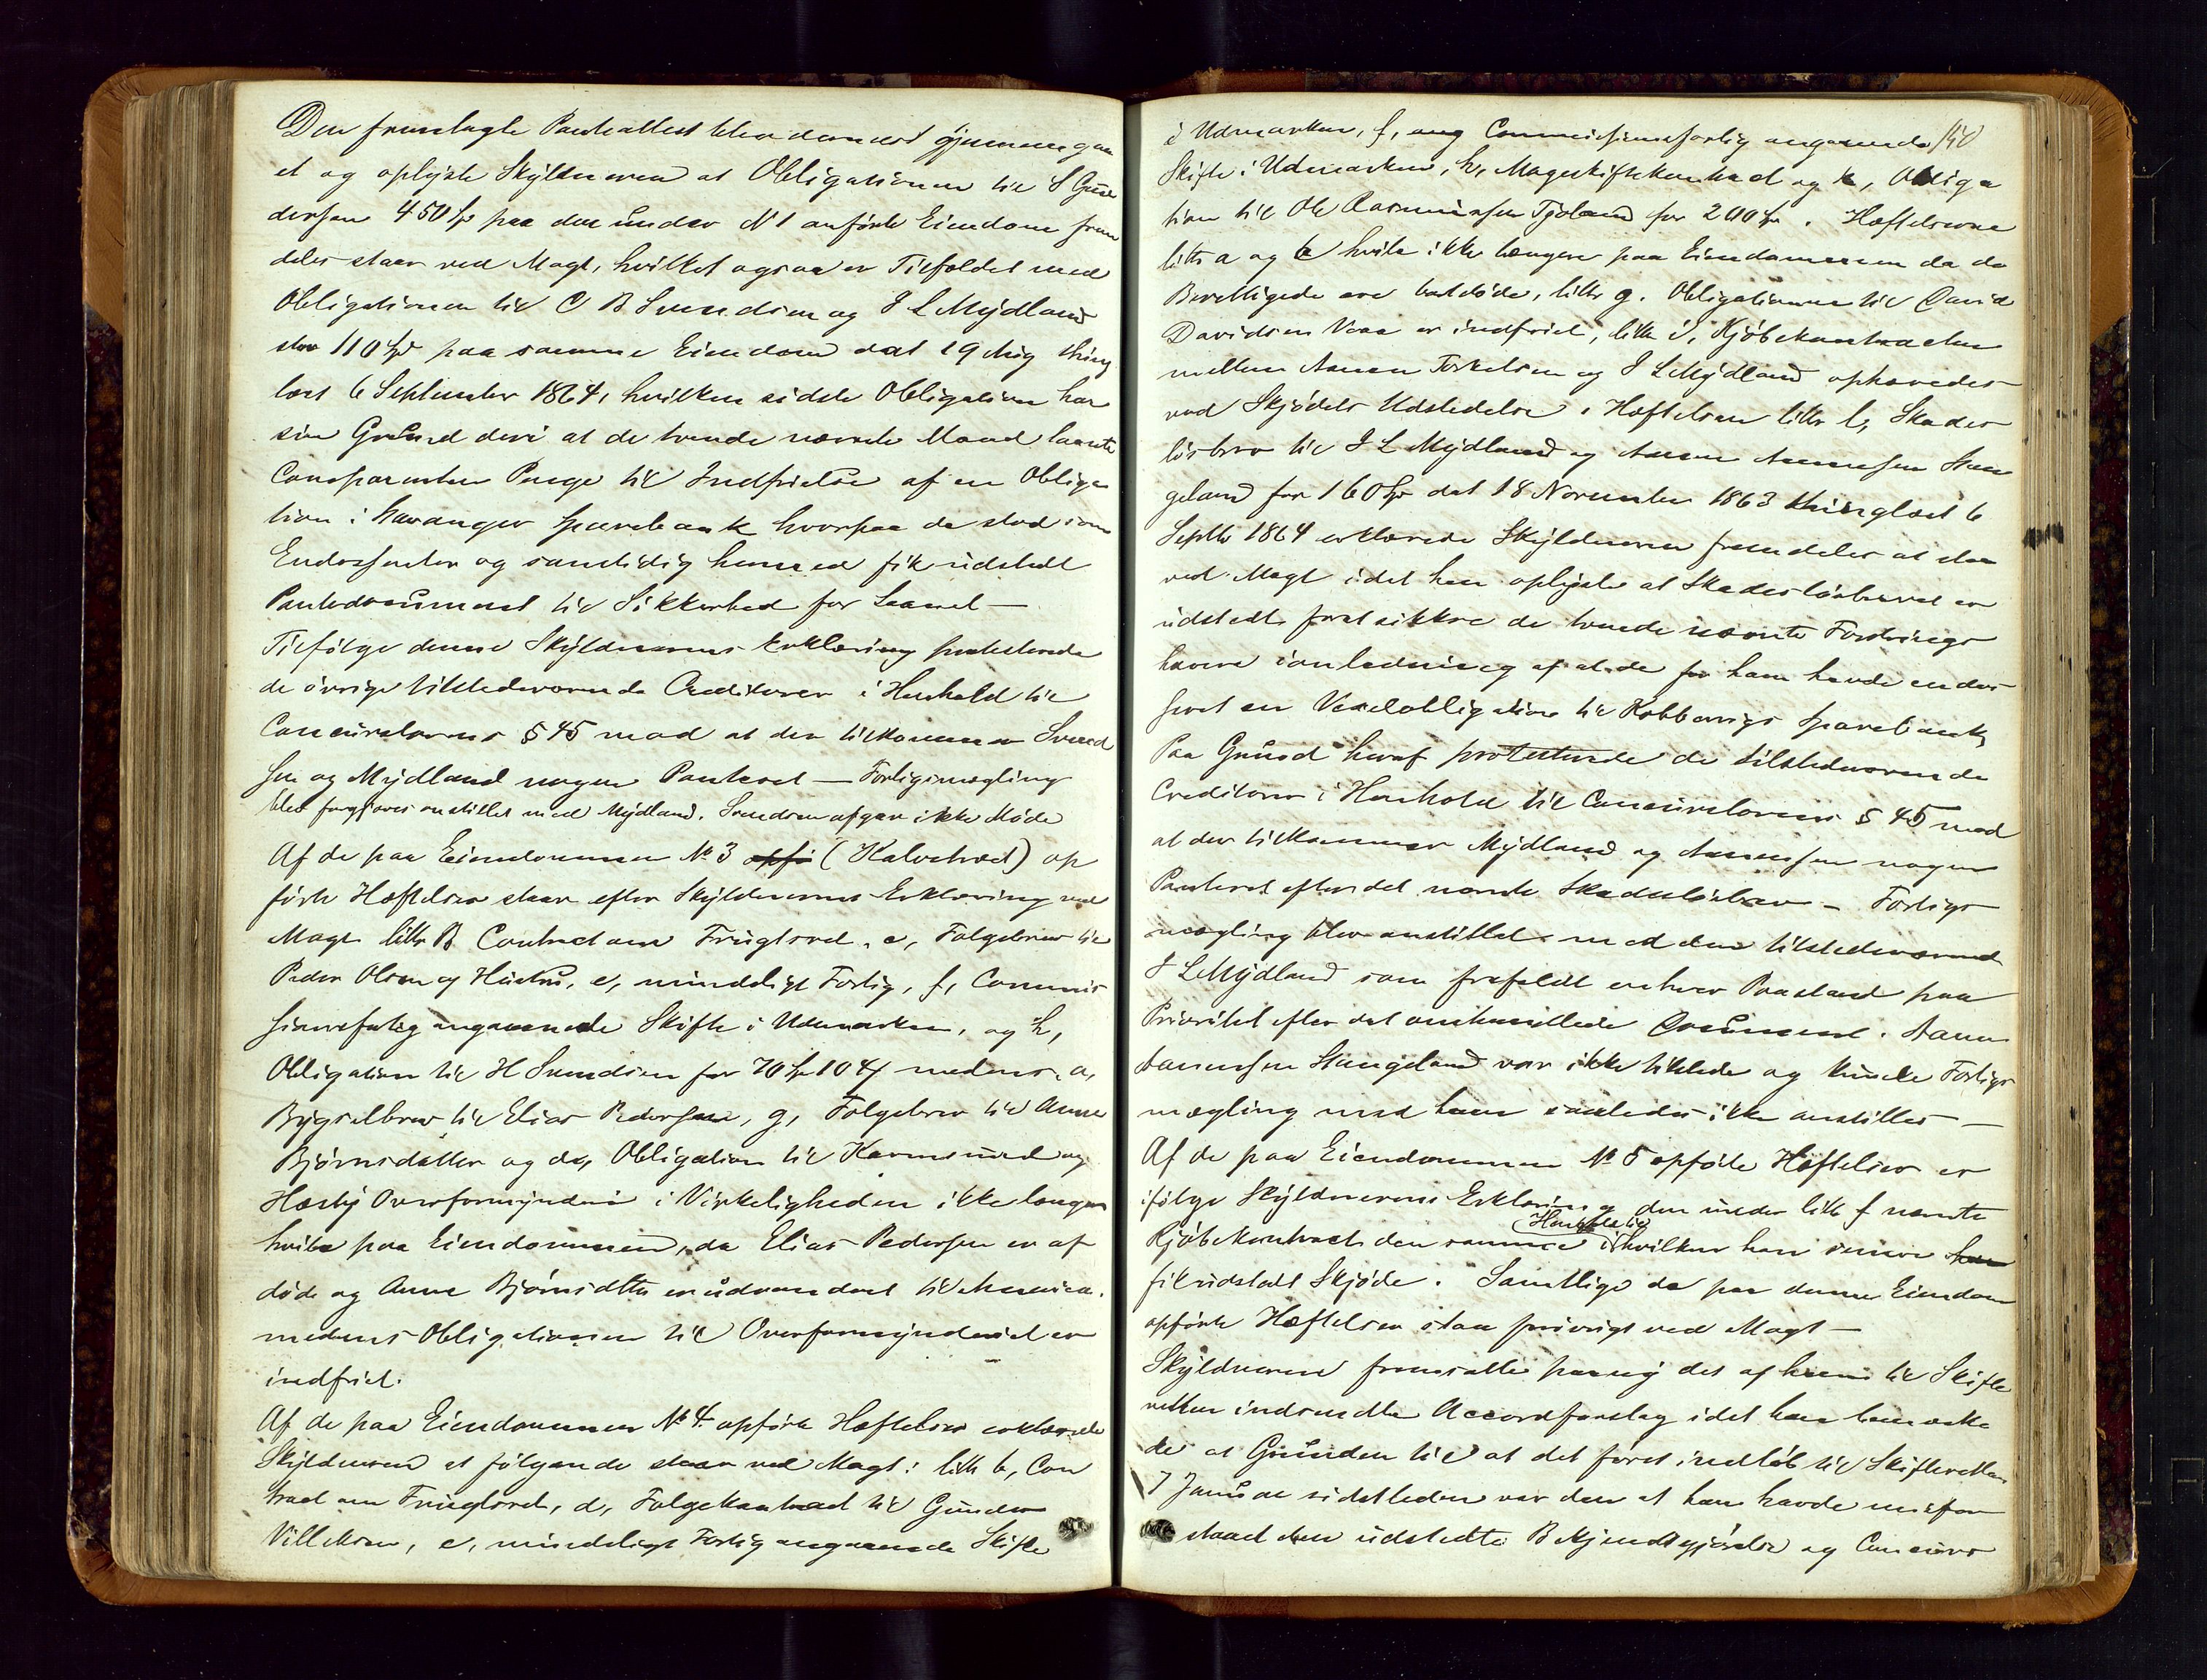 Den fremlagte Panteattest blev dernæst gjennemgaa
et og oplyste Skyldneren at Obligationen til S Gun
dersen 450 Sp paa den under N 1 anførte Eiendom frem
deles staar ved Magt, hvilket ogsaa er Tilfældet med
Obligationen til C B Svendsen og J L Mydland
stor 110 Sp paa samme Eiendom dat 19 Aug thing
læst 6 September 1864, hvilken sidste Obligation har
sin Grund deri at de tvende nævnte Mænd laante
Comparenten Penge til Indfrielse af en Obliga
tion i Stavanger Sparebank hvorpaa de stod som
Endossenter og samtidig hermed fik udstedt
Pantedocument til Sikkerhed for Laanet —
Tilfølge denne Skyldnerens Erklæring protesterede
de øvrige tilstedeværende Creditorer i Henhold til
Concurslovens § 45 mod at der tilkommer Svend
sen og Mydland nogen Panteret — Forligsmægling
blev forgjæves anstillet med Mydland. Svendsen afgav ikke Møde
Af de paa Eiendommen No 3 opfø (Kalvetræd) op
førte Hæftelser staar efter Skyldnerens Erklæring ved
Magt litr B Contract om Frugtord, c, Folgebrev til
Peder Olsen og Hustru, e, mindeligt Forlig, f, Commis
sionsforlig angaaende Skifte i Udmarken, og h,
Obligation til H Svendsen for 70 Sp 104 medens a,
Bygselbrev til Elias Pedersen, g, Folgebrev til Anne
Bjørnsdatter og d, Obligation til Karmsund og
Hesby Overformynderi i Virkeligheden ikke længer
hviler paa Eiendommen, da Elias Pedersen er af
døde og Anne Bjørnsdtr er udvandret til Amerika.
medens Obligationen til Overformynderiet er
indfriet.
Af de paa Eiendommen No 4 opførte Hæftelser erklærede
Skyldneren at følgende staar ved Magt: litr b, Con
tract om Frugtord, d, Folgekontract til Gunder
Villeksen, e, mindeligt Forlig angaaende Skifte
i Udmarken, f, ang Commissionsforlig angaaende
Skifte i Udmarken, h, Mageskiftekontract og k, Obliga
tion til Ole Rasmussen Tjoland for 200 Sp. Hæftelserne
litr a og c hviler ikke længer paa Eiendommen da de
Berettigede ere bortdøde, litr g. Obligationen til David
Davidsen Vaa er indfriet, litr i, Kjøbekontracten
mellem Aanen Torkelsen og J L Mydland ophævedes
ved Skjødets Udstedelse. Hæftelsen litr l, Skades
løsbrev til J L Mydland og Aanen Aanensen Stan
geland for 160 Sp dat 18 November 1863 thinglæst 6
Septbr 1864 erklærede Skyldneren fremdeles at staa
ved Magt idet han oplyste at Skadesløsbrevet er
udstedt for at sikkre de tvende nævnte Fordrings
havere i anledning af at de for ham havde endos
seret en Vexelobligation til Kobbervigs Sparebank,
Paa Grund heraf protesterede de tilstedeværende
Creditorer i Henhold til Concurslovens § 45 mod
at der tilkommer Mydland og Aanensen nogen
Panteret efter det nævnte Skadesløsbrev — Forligs
mægling blev anstillet med den tilstedeværende
J L Mydland som frafaldt enhver Paastand paa
Prioritet efter det omhandlede Document. Aanen
Aanensen Stangeland var ikke tilstede og kunde Forligs
mægling med ham saaledes ikke anstilles —
Af de paa Eiendommen No 5 opførte Hæftelser er
ifølge Skyldnerens Erklæring den under litr f nævnte
Henhold til
Kjøbekontract den samme i hvilken han senere han
fik udstedt Skjøde. Samtlige de paa denne Eiendom
opførte Hæftelser staa forøvrigt ved Magt —
Skyldneren fremsatte paany det af ham til Skifte
retten indsendte Accordforslag idet han bemærke
de at Grunden til at det først indløb til Skifteretten
7 Januar sidstleden var den at han havde misfor
staaet den udstedte Bekjendtgjørelse og Concurs